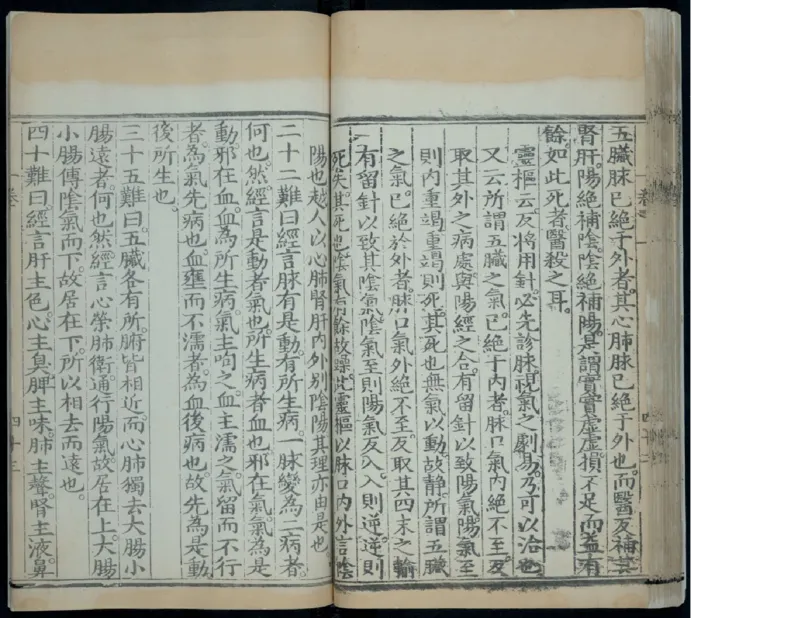 五臟脉已絶于外者。其心肺脉已絶于外也。而醫反補其
腎肝。陽絶補陰。陰絶補陽。是謂實實虛虛。損不足而益有
餘。如此死者。醫殺之耳。
靈樞云。凡將用針。必先診脉。視氣之劇易。乃可以治也
又云所謂五臟之氣。已絶于内者。脉口氣内絶不至。反
取其外之病處。與陽經之合。有留針以致陽氣。陽氣至
則内重竭。重竭則死。其死也無氣以動。故静。所謂五臟
之氣。已絶於外者。脉口氣外絶不至。反取其四末之輸
有留針以致其陰氣。陰氣至則陽氣反入。入則逆。逆則
死矣。其死也陰氣有餘故躁。此靈樞以脉口内外言陰
陽也越人以心肺腎肝内外別陰陽其理亦由是也
二十二難曰。經言脉有是動。有所生病。一脉變為二病者。
何也。然。經言是動者氣也。所生病者血也。邪在氣。氣為是
動。邪在血。血為所生病。氣主呴之。血主濡之。氣留而不行
者。為氣先病也。血壅而不濡者。為血後病也。故先為是動
後所生也。
三十五難曰。五臟各有所。腑皆相近。而心肺獨去大腸小
腸遠者。何也。然。經言心榮肺衛。通行陽氣。故居在上。大腸
小腸傳陰氣而下。故居在下。所以相去而遠也。
四十難曰。經言肝主色。心主臭。脾主味。肺主聲。腎主液。鼻
四十三